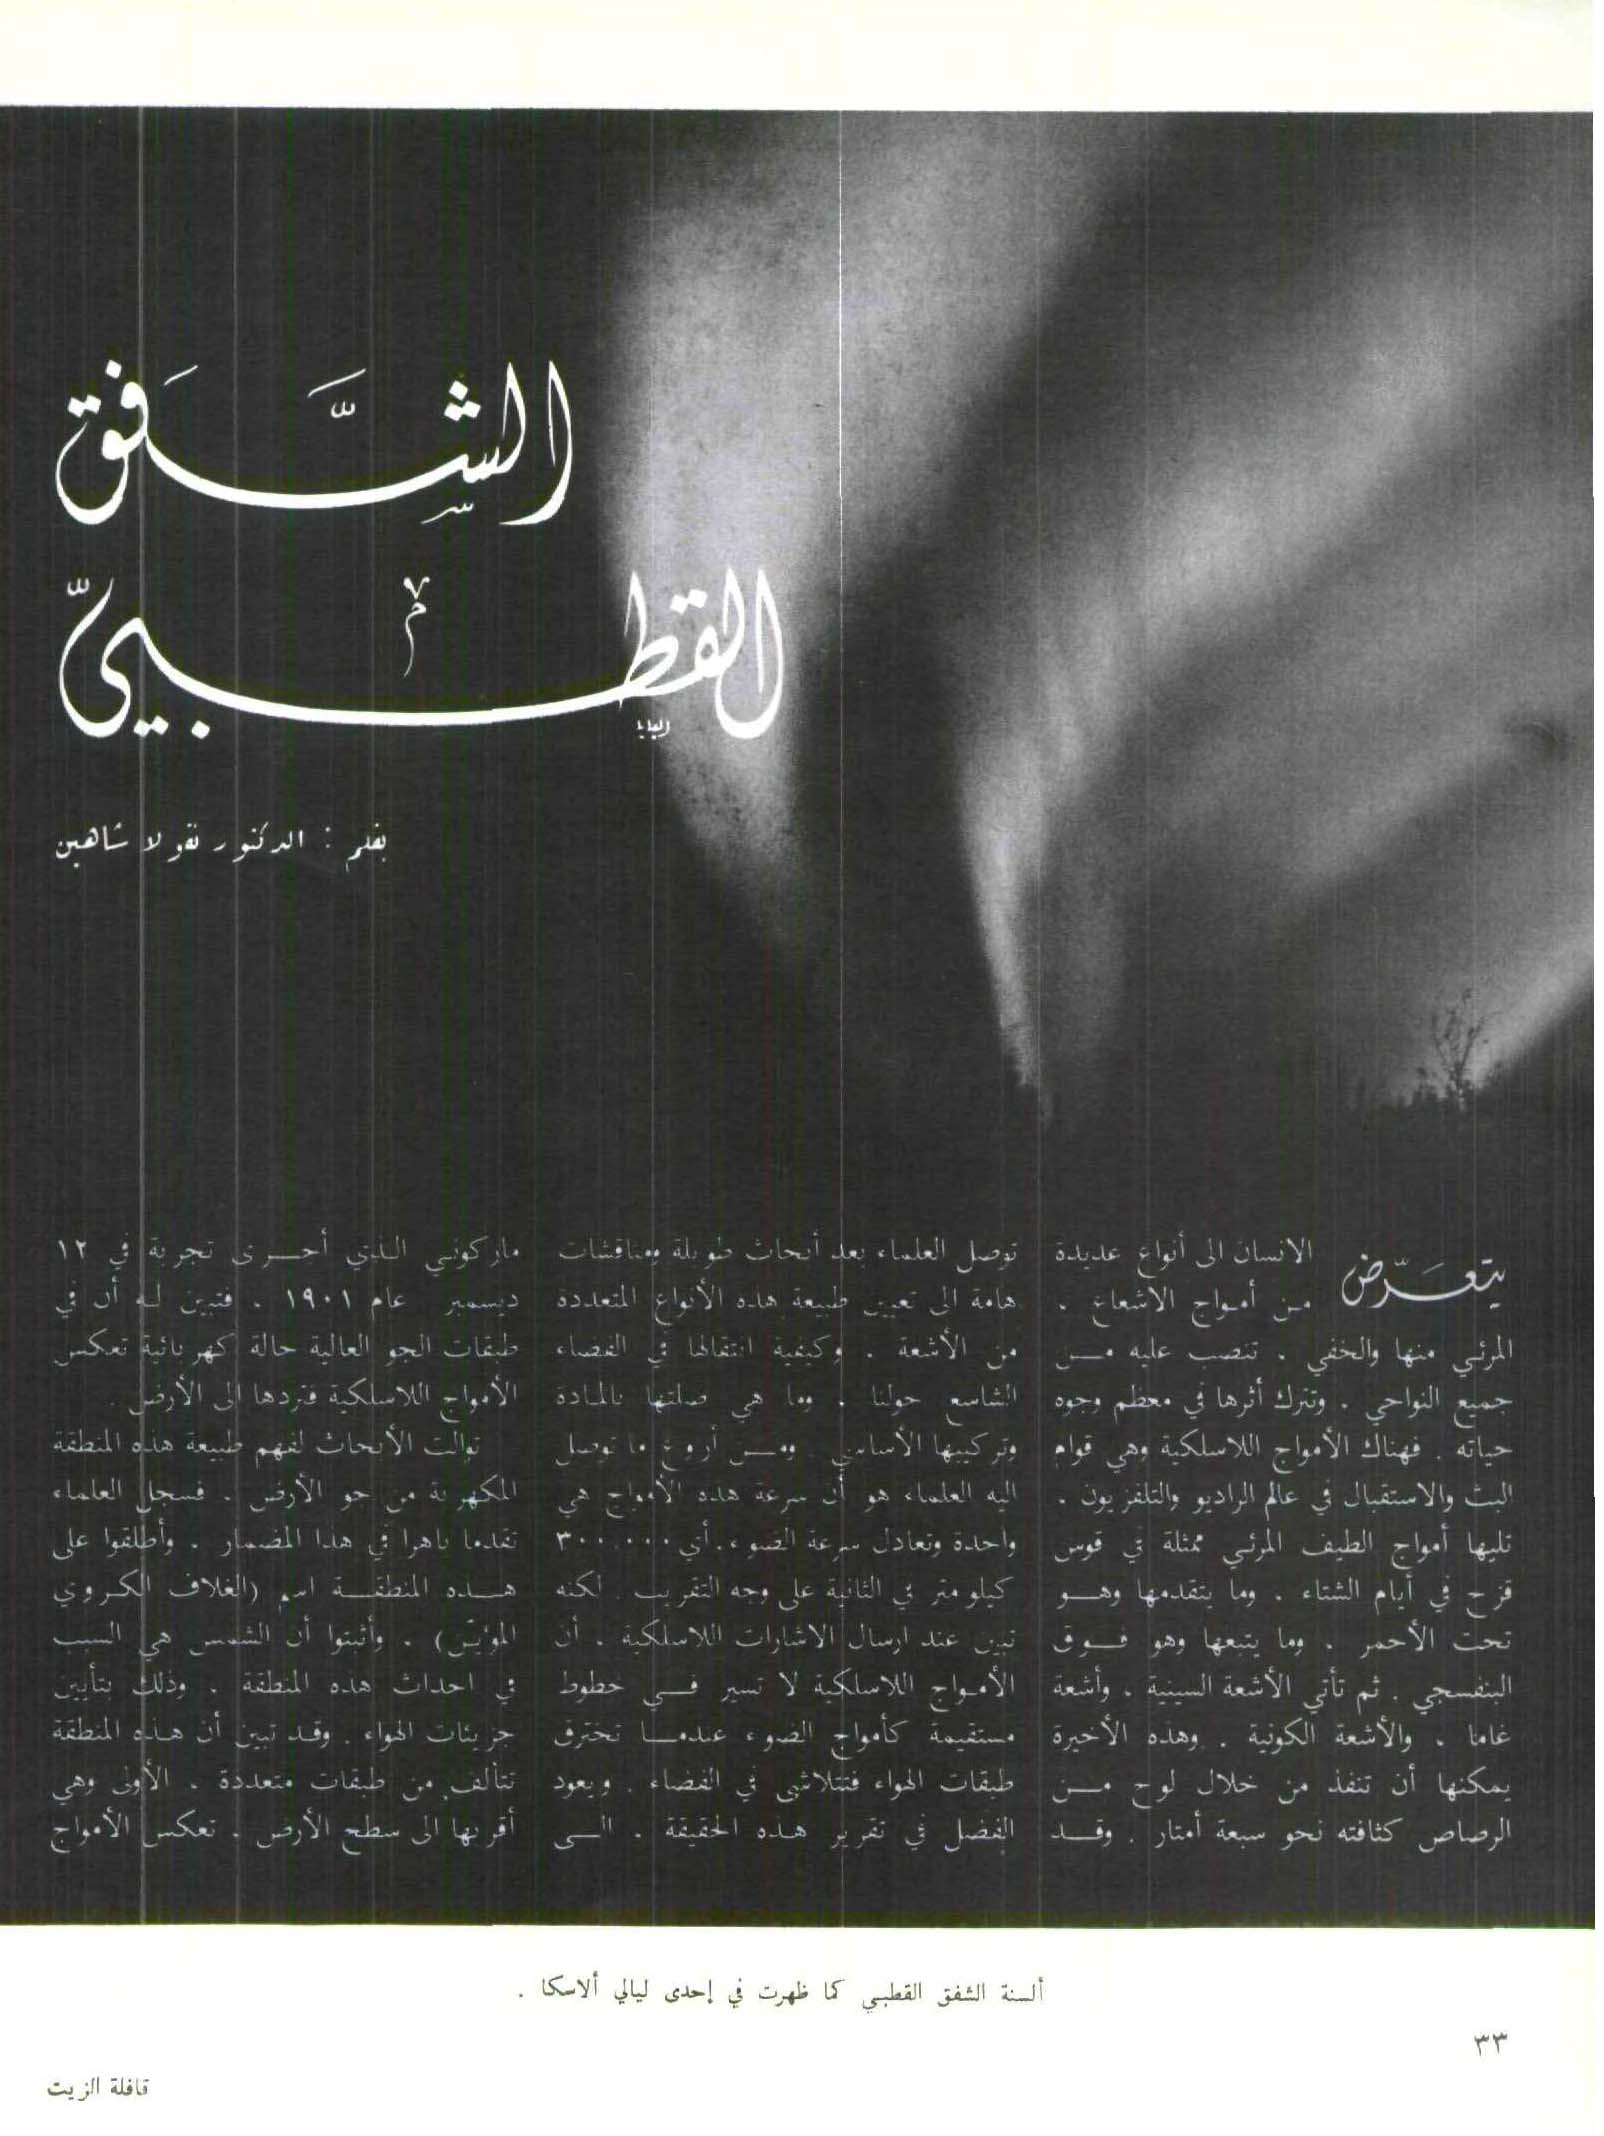 الشَّفق
القطبيّ
البابا
بقلم : الدكتور نقولا شاهين
يتعرّض الانسان الى أنواع عديدة
من أمواج الاشعاع .
المرئي منها والخفي . تنصب عليه من
جميع النواحي . وتترك أثرها في معظم وجوه
حياته . فهناك الأمواج اللاسلكية وهي قوام
البث والاستقبال في عالم الراديو والتلفزيون .
تليها أمواج الطيف المرئي ممثلة في قوس
قزح في أيام الشتاء . وما يتقدمها وهو
تحت الأحمر . وما يتبعها وهو فوق
البنفسجي . ثم تأتي الأشعة السينية . وأشعة
غاما . والأشعة الكونية . وهذه الأخيرة
يمكنها أن تنفذ من خلال لوح من
الرصاص كثافته نحو سبعة أمتار . وقد
توصل العلماء بعد أبحاث طويلة ومناقشات
هامة الى تعيين طبيعة هذه الأنواع المتعددة
من الأشعة . وكيفية انتقالها في الفضاء
الشاسع حولنا . وما هي صلتها بالمادة
وتركيبها الأساسي . ومن أروع ما توصل
اليه العلماء هو أن سرعة هذه الأمواج هي
واحدة وتعادل سرعة الضوء . أي ٣٠٠.٠٠٠
كيلو متر في الثانية على وجه التقريب . لكنه
تبين عند ارسال الاشارات اللاسلكية . أن
الأمواج اللاسلكية لا تسير في خطوط
مستقيمة كأمواج الضوء عندما تخترق
طبقات الهواء فتتلاشى في الفضاء . ويعود
الفضل في تقرير هذه الحقيقة . الى
ماركوني الذي أجرى تجربة في ١٢
ديسمبر عام ١٩٠١ . فتبين له أن في
طبقات الجو العالية حالة كهربائية تعكس
الأمواج اللاسلكية فتردها الى الأرض .
توالت الأبحاث لفهم طبيعة هذه المنطقة
المكهربة من جو الأرض . فسجل العلماء
تقدما باهرا في هذا المضمار . وأطلقوا على
هذه المنطقة اسم (الغلاف الكروي
المؤيّن) . وأثبتوا أن الشمس هي السبب
في احداث هذه المنطقة . وذلك بتأيين
جزيئات الهواء . وقد تبين أن هذه المنطقة
تتألف من طبقات متعددة . الأولى وهي
أقربها الى سطح الأرض . تعكس الأمواج
ألسنة الشفق القطبي كما ظهرت في إحدى ليالي ألاسكا .
٣٣
قافلة الزيت